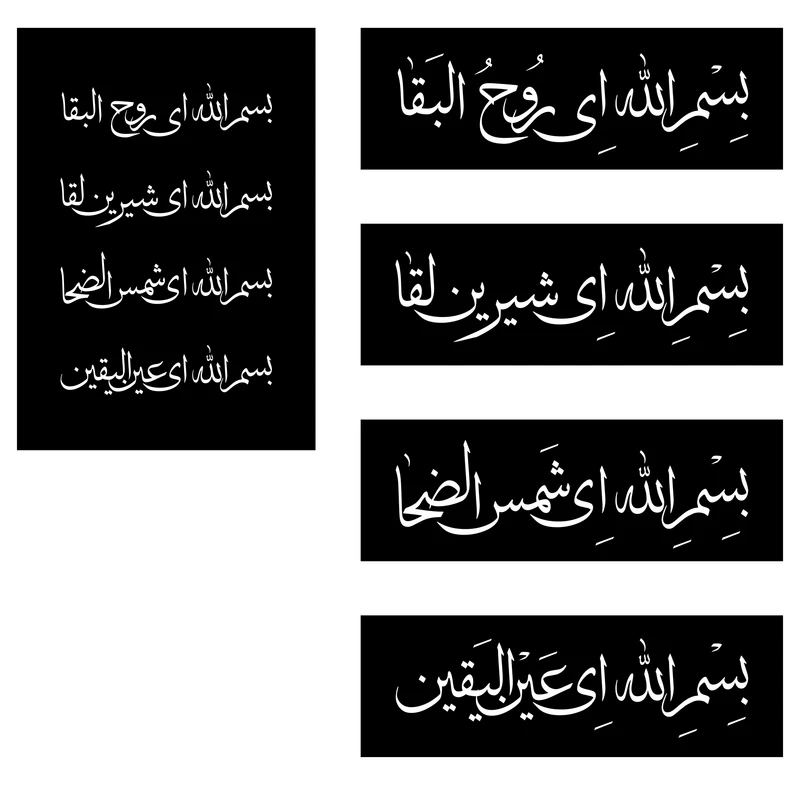 بسم الله ای روح البقا
بسم الله ای شیرین لقا
بسم الله ای شمس الضحا
بسم الله ای عین الیقین
بِسْمِ اللّٰه اِی رُوحُ البَقا
بِسْمِ اللّٰه اِی شیرین لقا
بِسْمِ اللّٰه اِی شَمس الضحا
بِسْمِ اللّٰه اِی عَیْن الیَقین